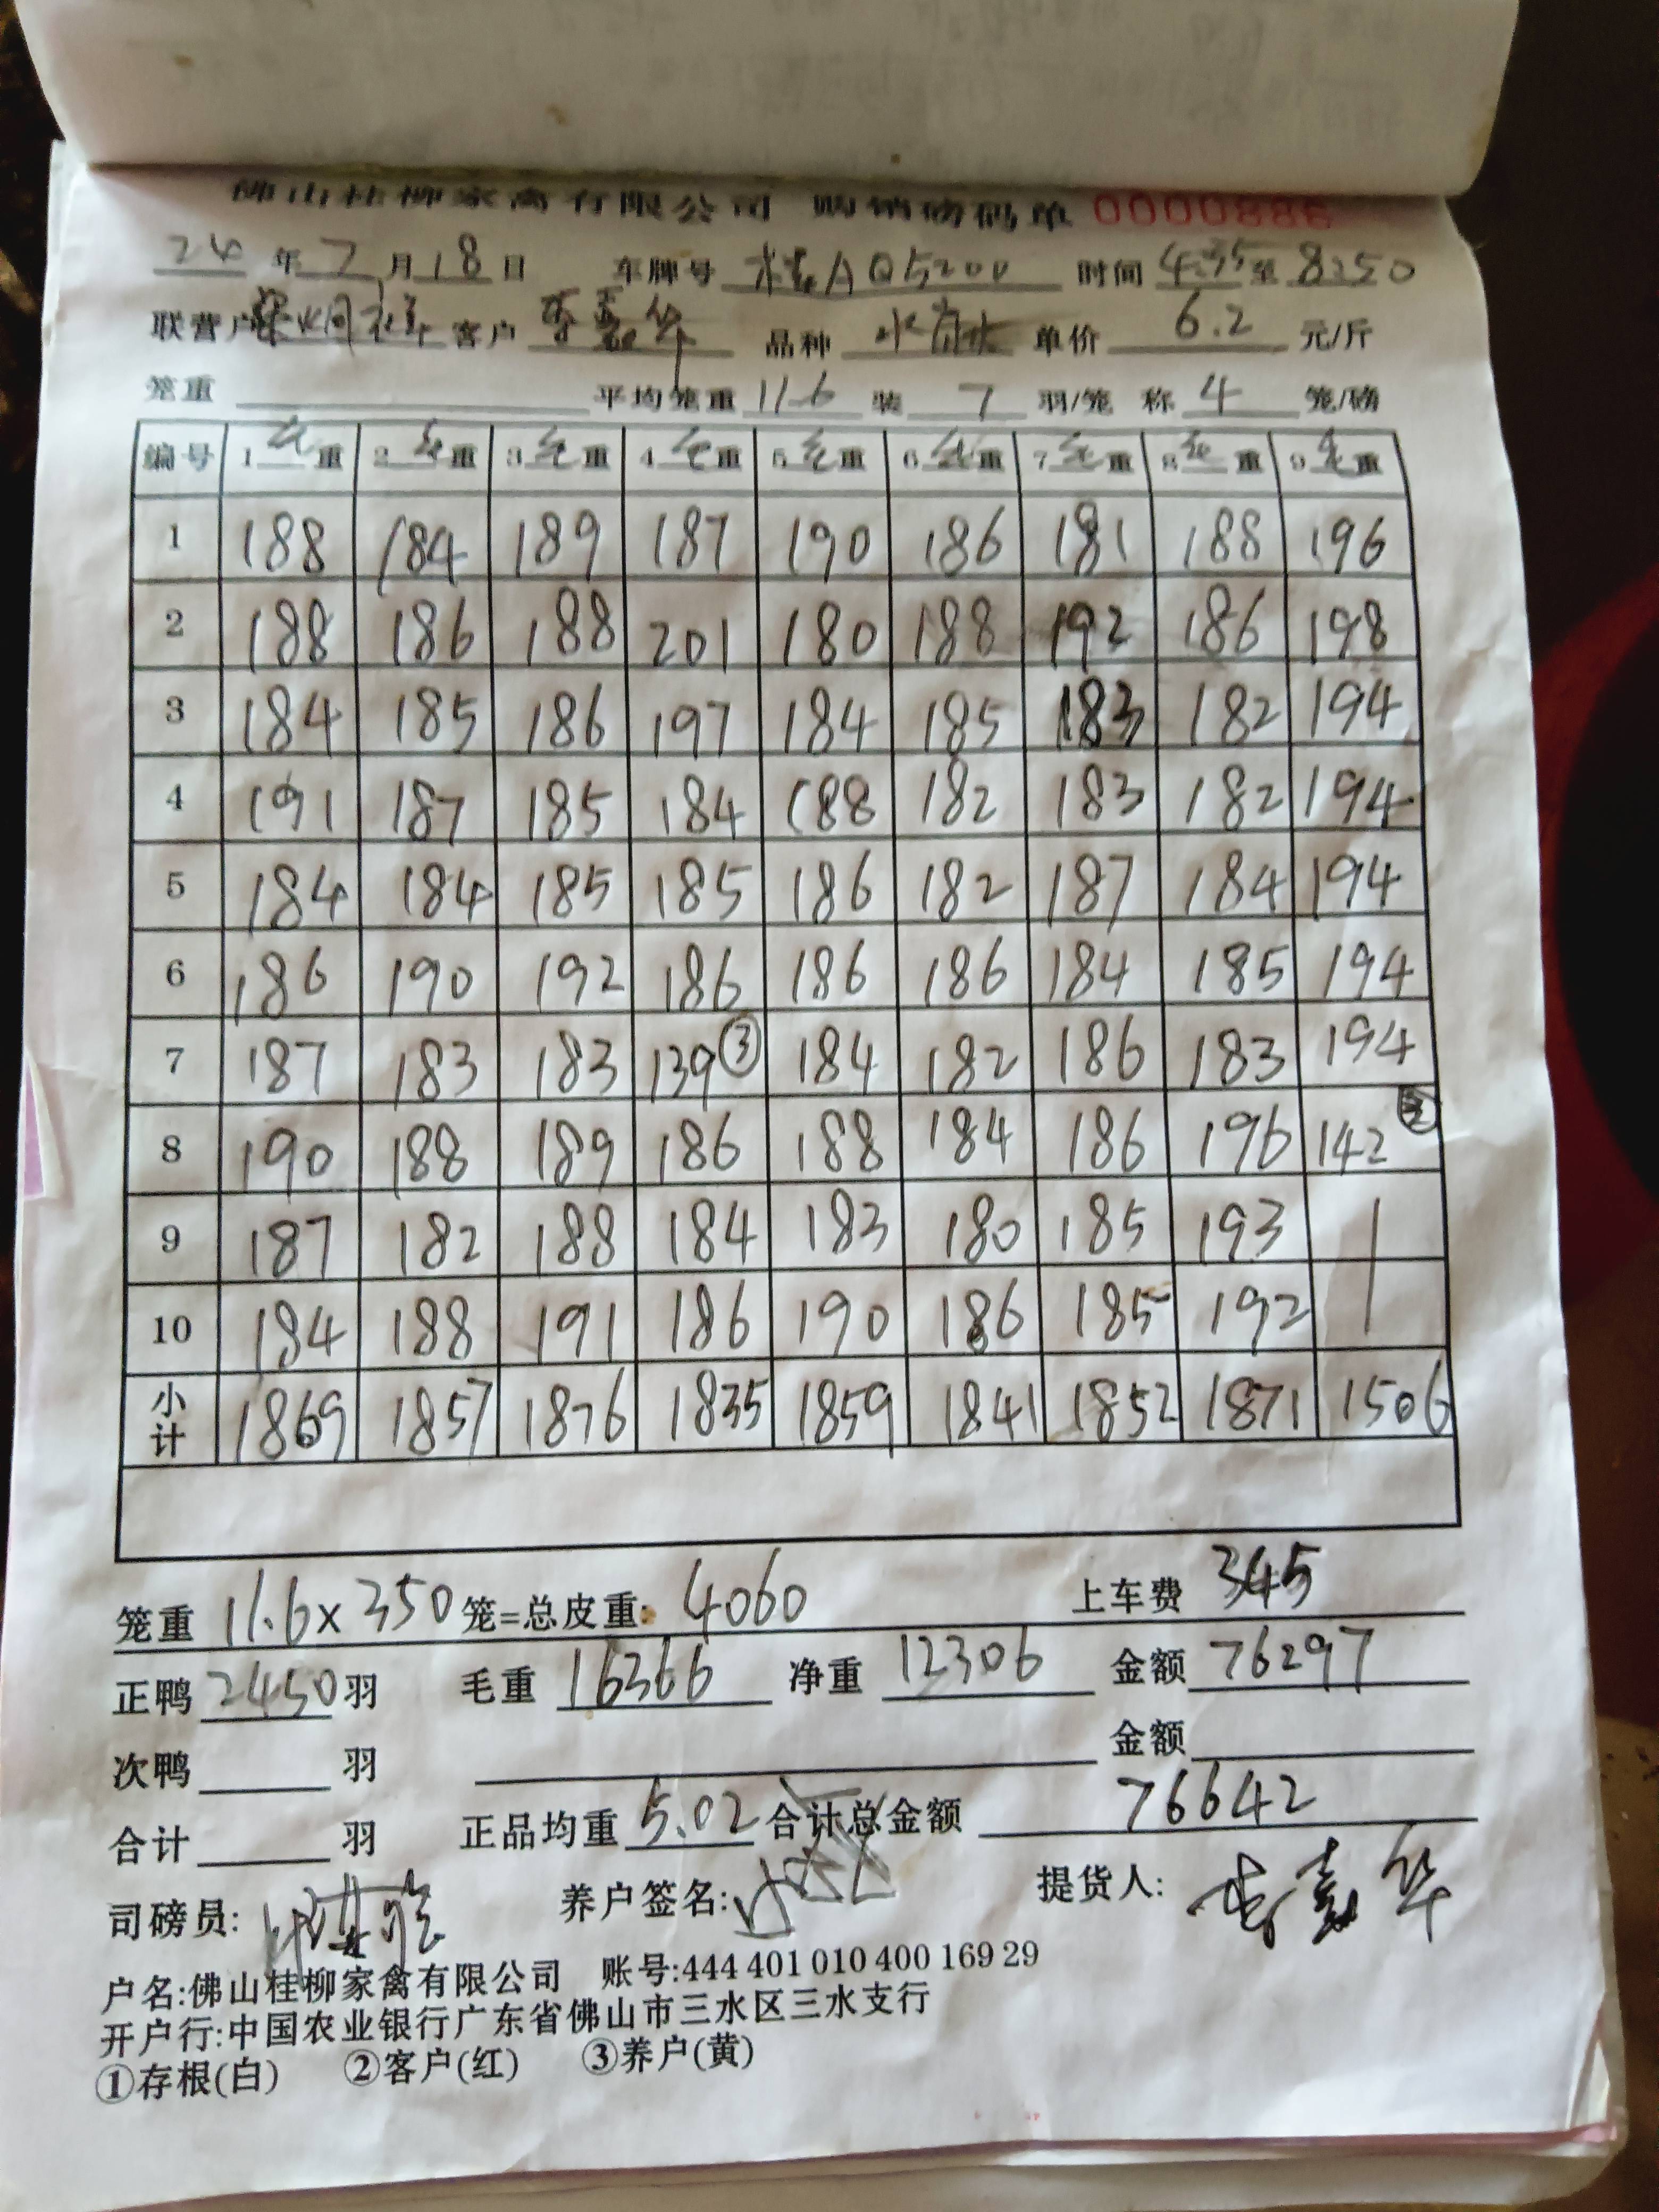 佛山桂柳家禽有限公司 购销磅码单 0000886
24年7月18日 车牌号 桂AQ5200 时间 4:35至8:50
联营户 客户 李嘉华 品种 单价 6.2 元/斤
笼重 平均笼重 11.6 装 7 羽/笼 称 4 笼/磅
编号 1毛重 2毛重 3毛重 4毛重 5毛重 6毛重 7毛重 8毛重 9毛重
1 188 184 189 187 190 186 181 188 196
2 188 186 188 201 180 188 192 186 198
3 184 185 186 197 184 185 183 182 194
4 191 187 185 184 188 182 183 182 194
5 184 184 185 185 186 182 187 184 194
6 186 190 192 186 186 186 184 185 194
7 187 183 183 139③ 184 182 186 183 194
8 190 188 189 186 188 184 186 196 142
9 187 182 188 184 183 180 185 193
10 184 188 191 186 190 186 185 192
小计 1869 1857 1876 1835 1859 1841 1852 1871 1506
笼重 11.6×350 笼=总皮重: 4060 上车费 345
正鸭 2450 羽 毛重 16366 净重 12306 金额 76297
次鸭 羽 金额
合计 羽 正品均重 5.02 合计总金额 76642
司磅员: 养户签名: 提货人: 李嘉华
户名:佛山桂柳家禽有限公司 账号:444 401 010 400 169 29
开户行:中国农业银行广东省佛山市三水区三水支行
①存根(白) ②客户(红) ③养户(黄)